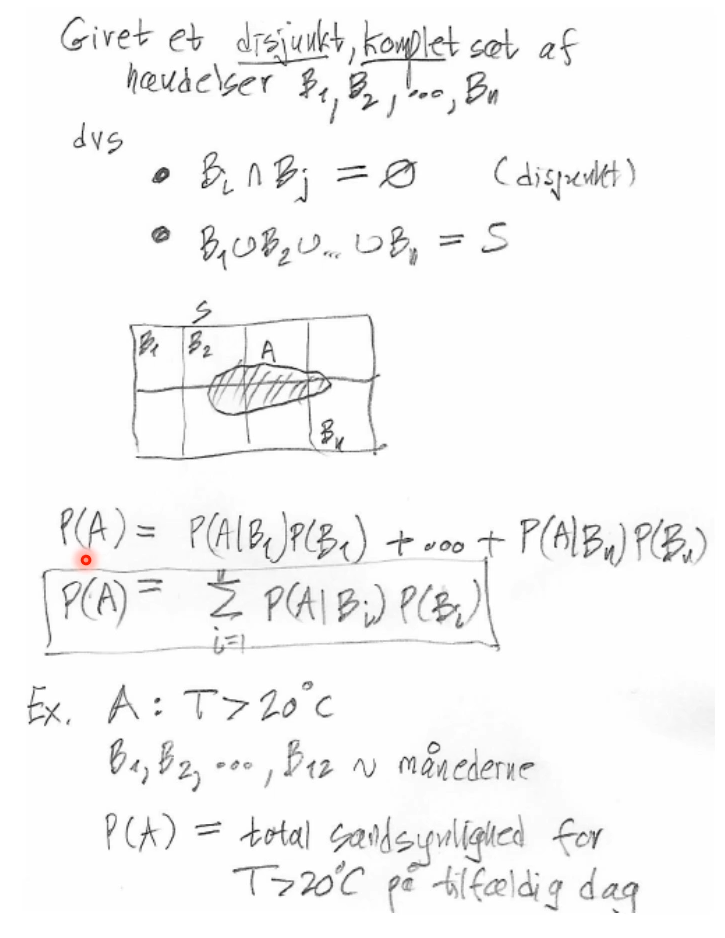 Givet et disjunkt, komplet sæt af
hændelser B₁, B₂, ..., Bₙ
dvs
• Bᵢ ∩ Bⱼ = ∅ (disjunkt)
• B₁ ∪ B₂ ∪ ... ∪ Bₙ = S
S
B₁ B₂ A
Bₙ
P(A) = P(A|B₁)P(B₁) + .... + P(A|Bₙ)P(Bₙ)
P(A) = ∑ᵢ₌₁ⁿ P(A|Bᵢ) P(Bᵢ)
Ex. A : T > 20°C
B₁, B₂, ..., B₁₂ ~ månederne
P(A) = total sandsynlighed for
T > 20°C på tilfældig dag